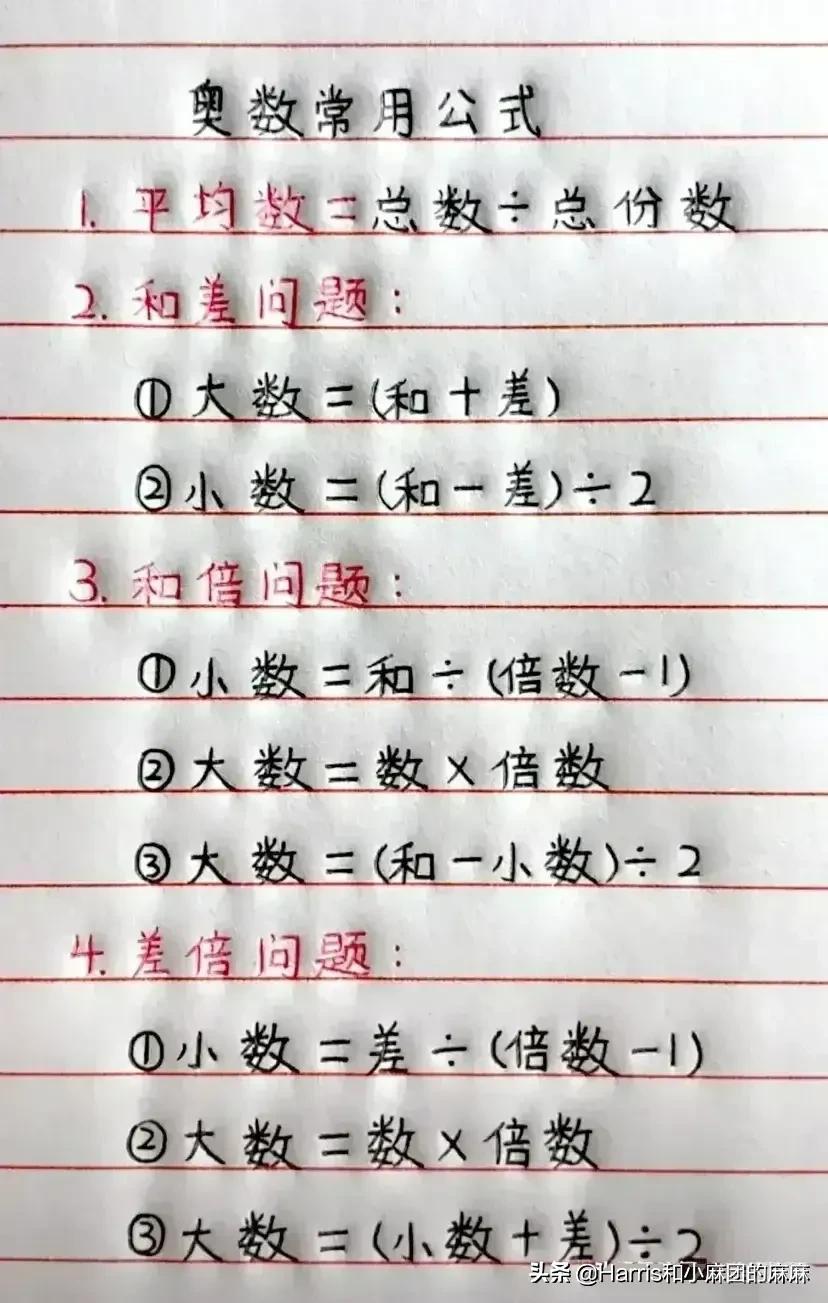 奥数常用公式
1. 平均数=总数÷总份数
2. 和差问题:
①大数=(和+差)
②小数=(和-差)÷2
3. 和倍问题:
①小数=和÷(倍数-1)
②大数=数×倍数
③大数=(和-小数)÷2
4. 差倍问题:
①小数=差÷(倍数-1)
②大数=数×倍数
③大数=(小数+差)÷2
头条 @Harris和小麻团的麻麻